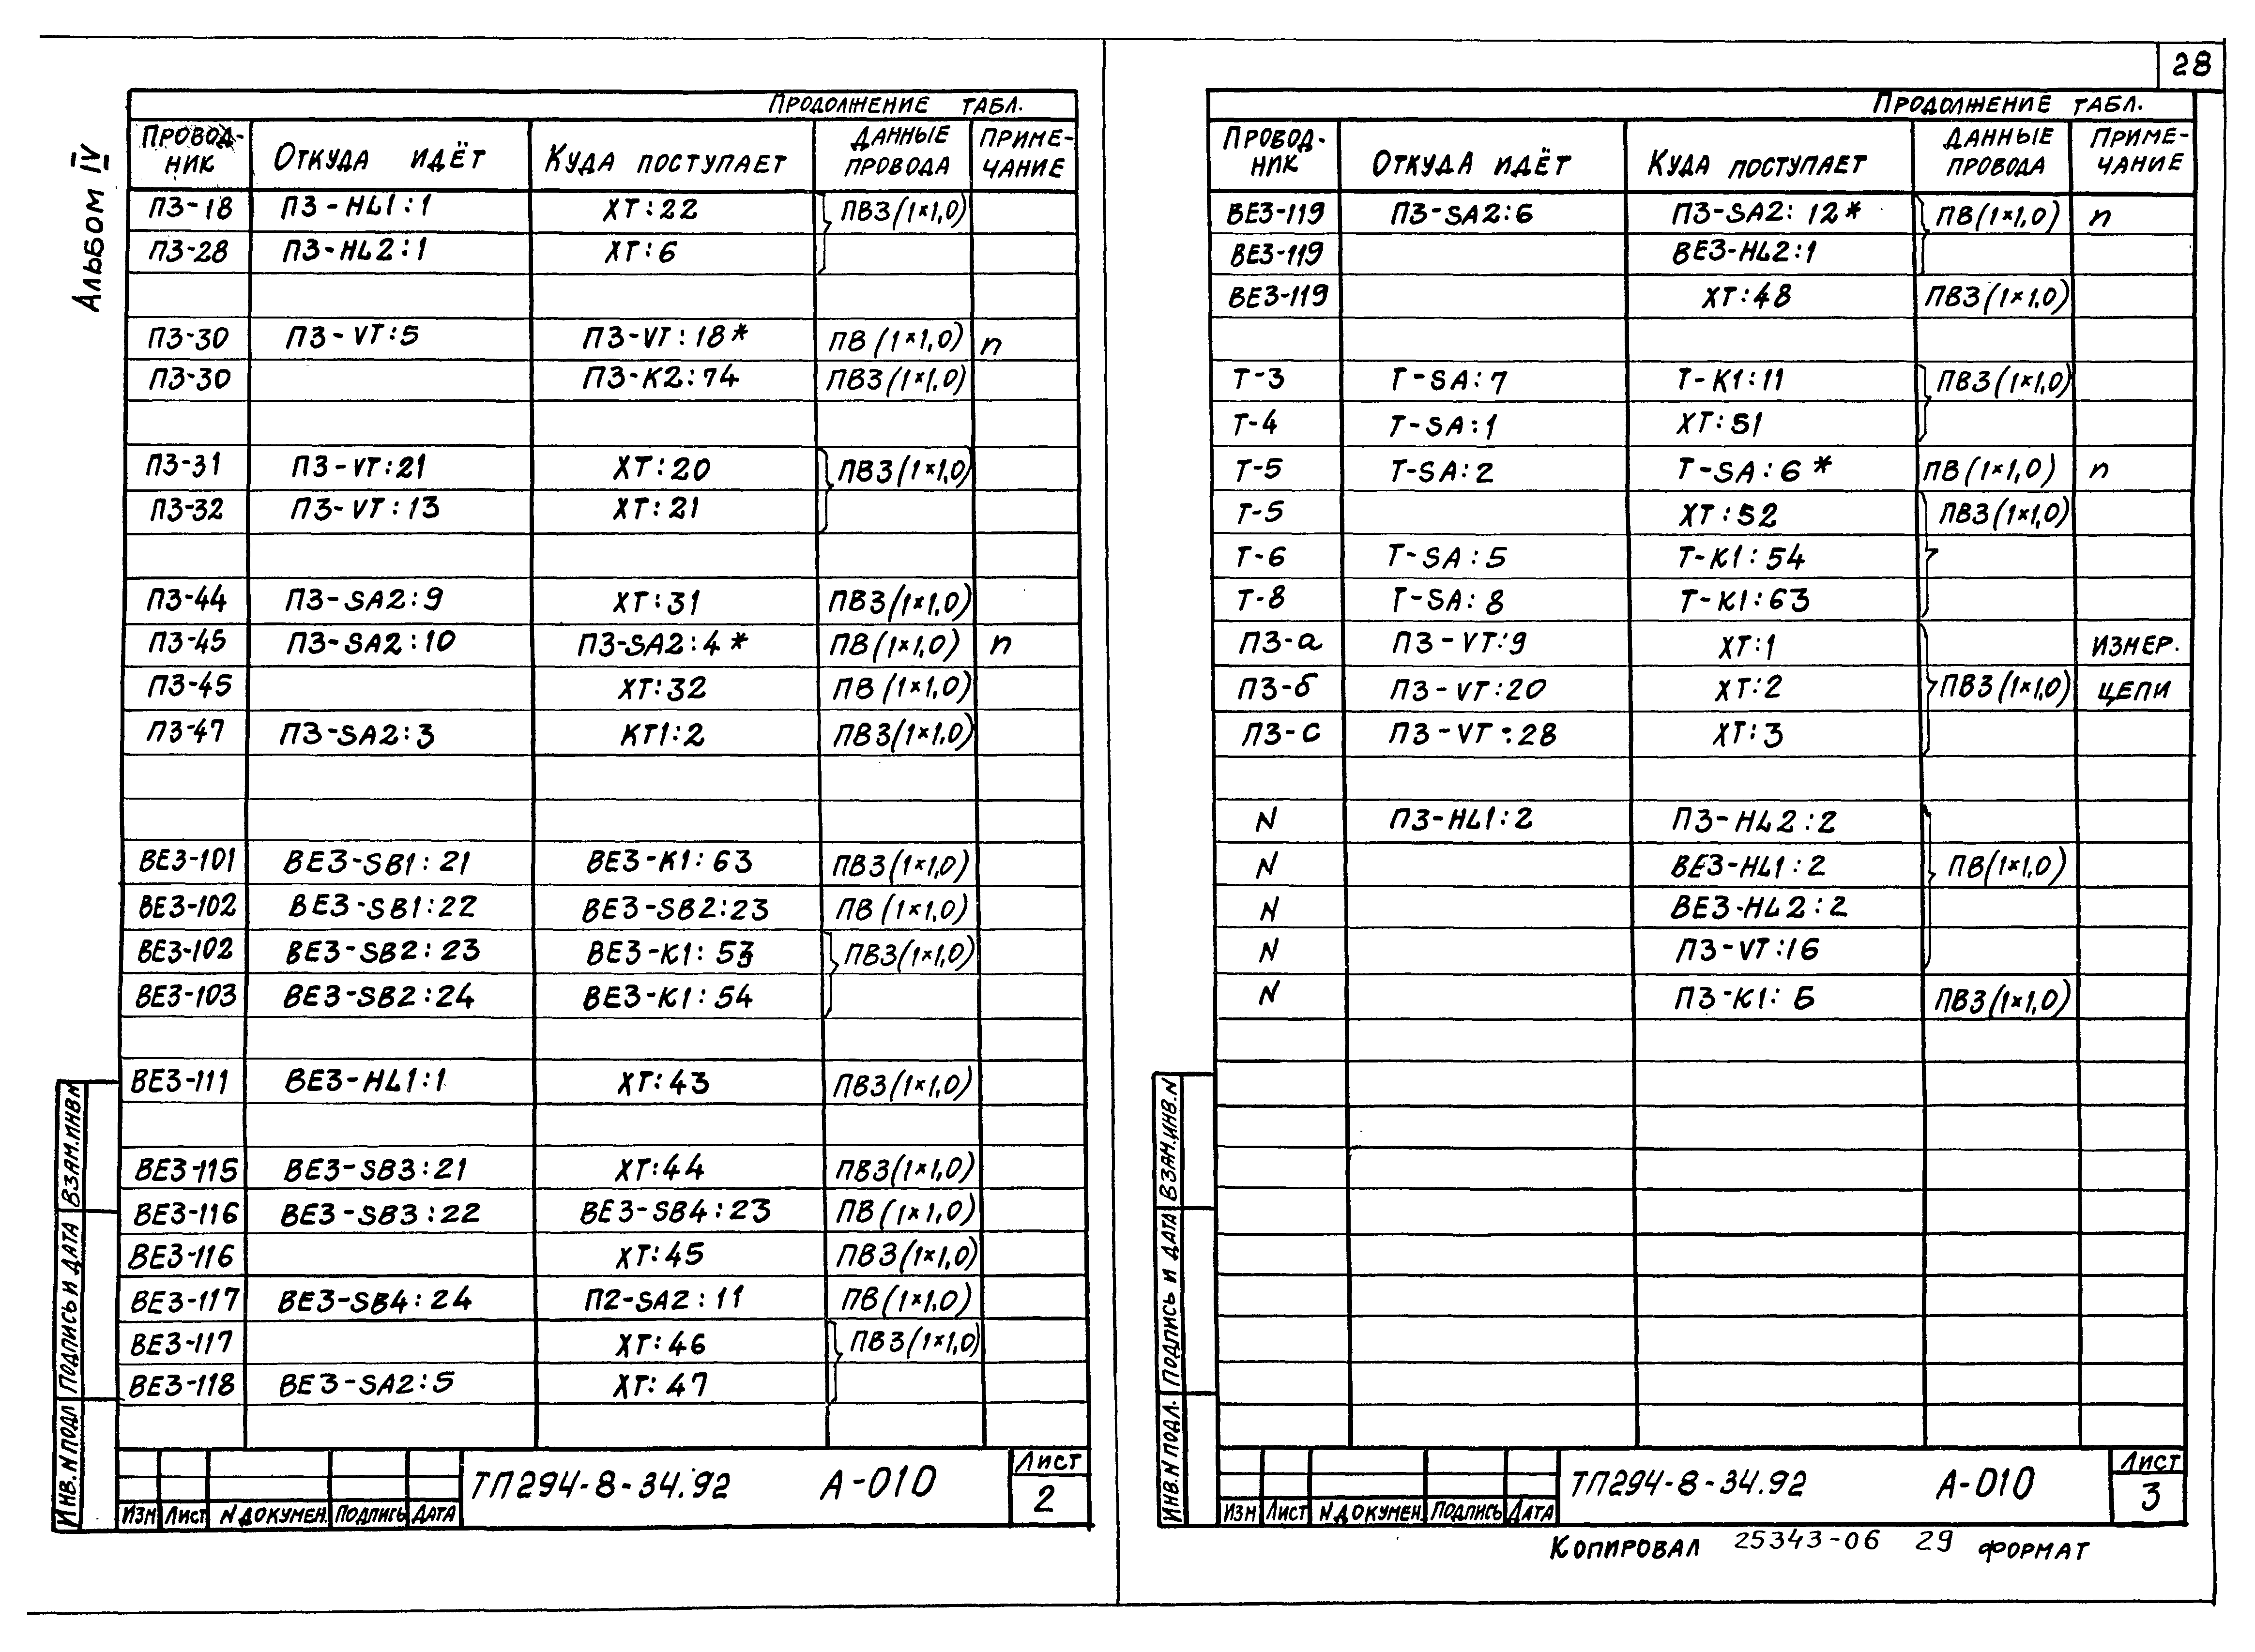 28
Альбом IV
Продолжение табл.
Провод- Откуда идёт Куда поступает Данные Приме-
ник провода чание
П3-18 П3-HL1:1 XT:22 ПВ3(1×1,0)
П3-28 П3-HL2:1 XT:6
П3-30 П3-VT:5 П3-VT:18* ПВ(1×1,0) п
П3-30 П3-K2:74 ПВ3(1×1,0)
П3-31 П3-VT:21 XT:20 ПВ3(1×1,0)
П3-32 П3-VT:13 XT:21
П3-44 П3-SA2:9 XT:31 ПВ3(1×1,0)
П3-45 П3-SA2:10 П3-SA2:4* ПВ(1×1,0) п
П3-45 XT:32 ПВ(1×1,0)
П3-47 П3-SA2:3 KT1:2 ПВ3(1×1,0)
ВЕ3-101 ВЕ3-SB1:21 ВЕ3-K1:63 ПВ3(1×1,0)
ВЕ3-102 ВЕ3-SB1:22 ВЕ3-SB2:23 ПВ(1×1,0)
ВЕ3-102 ВЕ3-SB2:23 ВЕ3-K1:53 ПВ3(1×1,0)
ВЕ3-103 ВЕ3-SB2:24 ВЕ3-K1:54
ВЕ3-111 ВЕ3-HL1:1 XT:43 ПВ3(1×1,0)
ВЕ3-115 ВЕ3-SB3:21 XT:44 ПВ3(1×1,0)
ВЕ3-116 ВЕ3-SB3:22 ВЕ3-SB4:23 ПВ(1×1,0)
ВЕ3-116 XT:45 ПВ3(1×1,0)
ВЕ3-117 ВЕ3-SB4:24 П2-SA2:11 ПВ(1×1,0)
ВЕ3-117 XT:46 ПВ3(1×1,0)
ВЕ3-118 ВЕ3-SA2:5 XT:47
Инв.N подл Подпись и дата Взам.инвN
Изм Лист N докумен. Подпись Дата
ТП294-8-34.92 А-010
Лист
2
Продолжение табл.
Провод- Откуда идёт Куда поступает Данные Приме-
ник провода чание
ВЕ3-119 П3-SA2:6 П3-SA2:12* ПВ(1×1,0) п
ВЕ3-119 ВЕ3-HL2:1
ВЕ3-119 XT:48 ПВ3(1×1,0)
Т-3 Т-SA:7 Т-K1:11 ПВ3(1×1,0)
Т-4 Т-SA:1 XT:51
Т-5 Т-SA:2 Т-SA:6* ПВ(1×1,0) п
Т-5 XT:52 ПВ3(1×1,0)
Т-6 Т-SA:5 Т-K1:54
Т-8 Т-SA:8 Т-K1:63
П3-а П3-VT:9 XT:1 измер.
П3-б П3-VT:20 XT:2 ПВ3(1×1,0) цепи
П3-с П3-VT:28 XT:3
N П3-HL1:2 П3-HL2:2
N ВЕ3-HL1:2 ПВ(1×1,0)
N ВЕ3-HL2:2
N П3-VT:16
N П3-K1:Б ПВ3(1×1,0)
Инв.N подл. Подпись и дата Взам.инв.N
Изм Лист N докумен. Подпись Дата
ТП294-8-34.92 А-010
Лист
3
Копировал 25343-06 29 формат